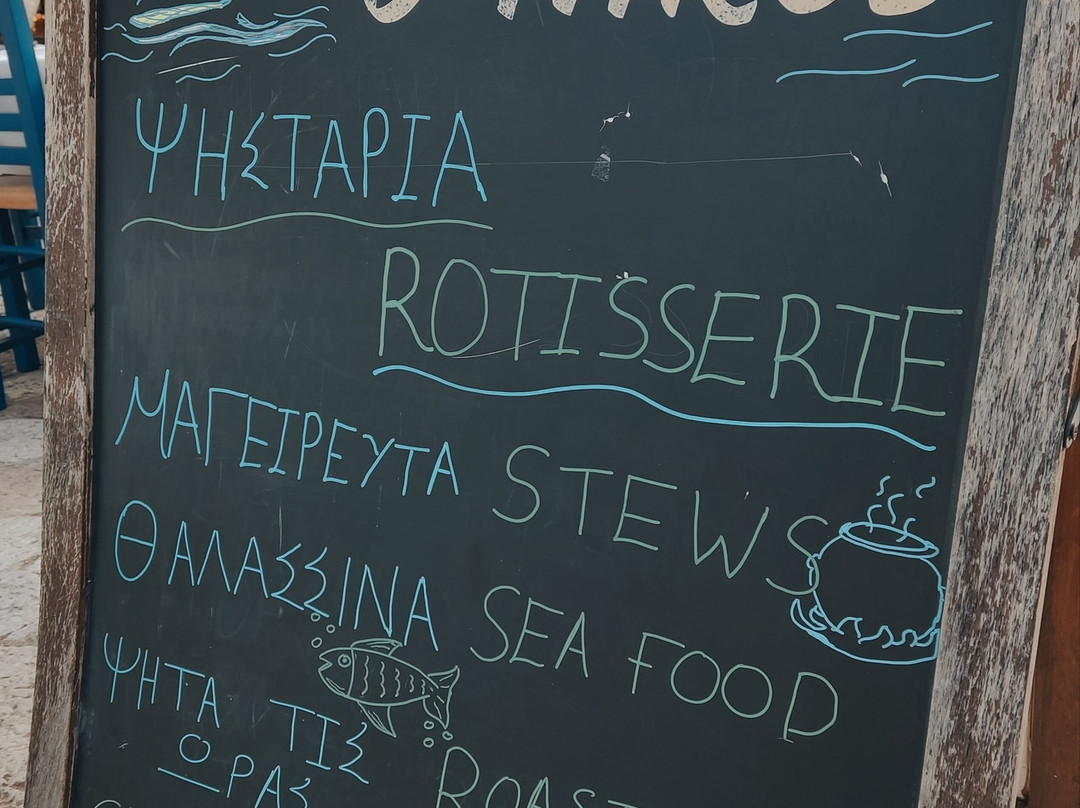 ΨΗΣΤΑΡΙΑ
ROTISSERIE
ΜΑΓΕΙΡΕΥΤΑ STEWS
ΘΑΛΑΣΣΙΝΑ SEA FOOD
ΨΗΤΑ ΤΙΣ
ΟΡΑΣ